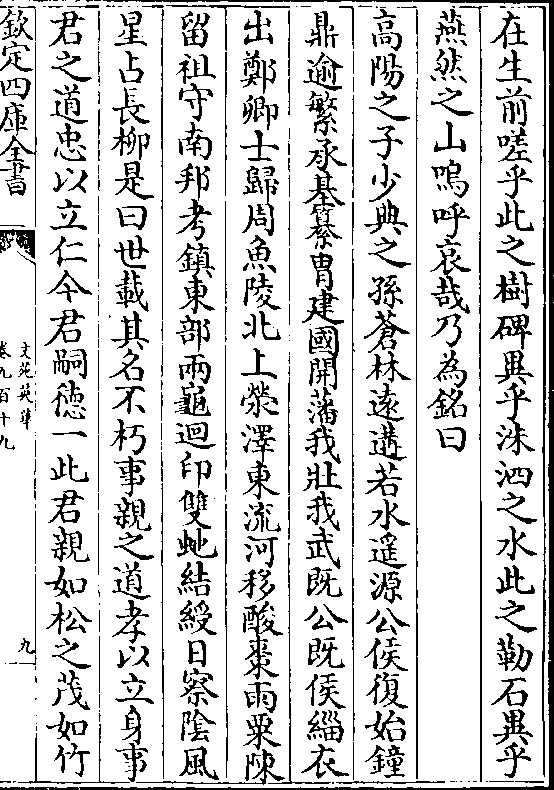 在生前嗟乎此之樹碑異乎洙泗之水此之勒石異乎
燕然之山嗚呼哀哉乃為銘曰
高陽之子少典之孫蒼林遠遘若水遥源公侯復始鐘
鼎逾繁承基纂胄建國開藩我壯我武既公既侯緇衣
出鄭卿士歸周魚陵北上滎澤東流河移酸棗雨粟陳
留祖守南邦考鎮東部兩龜迴印雙虵結綬日察陰風
星占長柳是曰世載其名不朽事親之道孝以立身事
君之道忠以立仁今君嗣徳一此君親如松之茂如竹
欽定四庫全書
文苑英華
卷九百十九
九